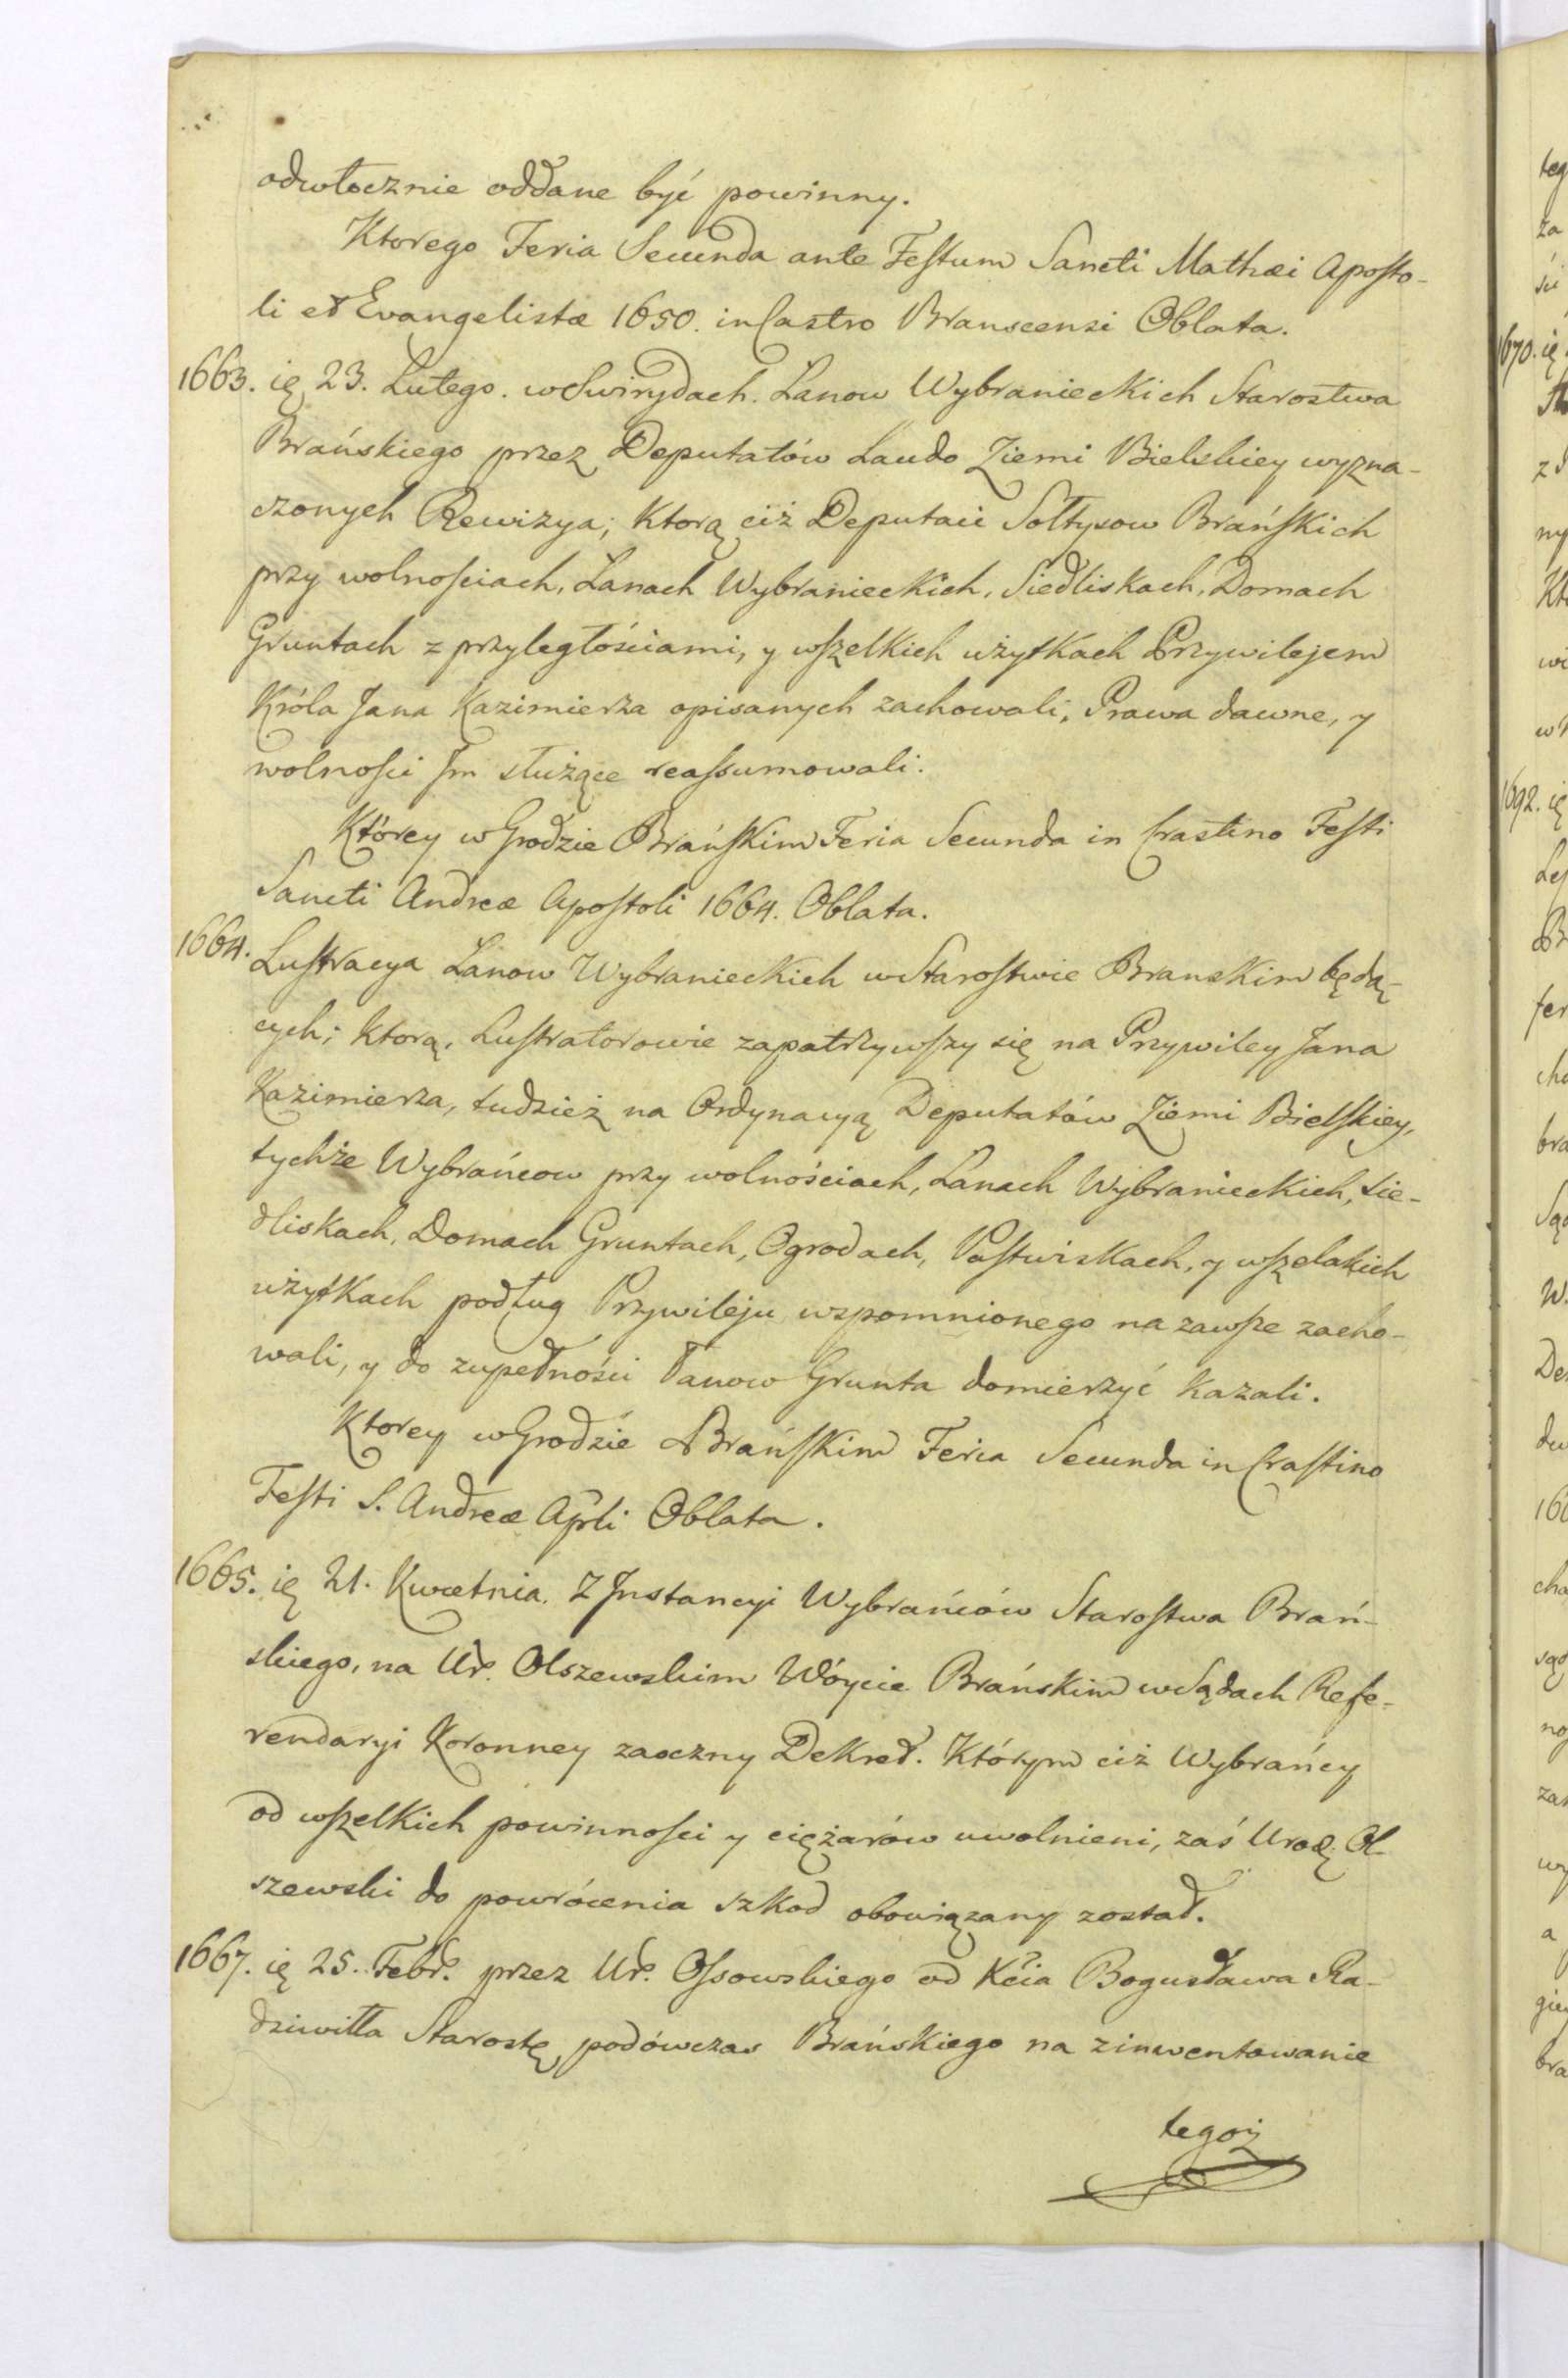 odwłocznie oddane być powinny.
Ktorego Feria Secunda ante Festum Sancti Mathæi Aposto-
li et Evangelistæ 1650. in Castro Branscensi Oblata.
1663. ię 23. Lutego. w Swirydach. Lanow Wybranieckich Starostwa
Brańskiego przez Deputatów Laudo Ziemi Bielskiey wyzna-
czonych Rewizya; ktorą ciż Deputaci Sołtysow Brańskich
przy wolnościach, Lanach Wybranieckich, Siedliskach, Domach
Gruntach z przyległościami, y wszelkich użytkach Przywilejem
Króla Jana Kazimierza opisanych zachowali, Prawa dawne, y
wolności Im służące reassumowali.
Którey w Grodzie Brańskim Feria Secunda in Crastino Festi
Sancti Andreæ Apostoli 1664. Oblata.
1664. Lustracya Lanow Wybranieckich w Starostwie Branskim będą-
cych; ktorą, Lustratorowie zapatrzywszy się na Przywiley Jana
Kazimierza, tudzież na Ordynacyą Deputatów Ziemi Bielskiey,
tychże Wybrańcow przy wolnościach, Lanach Wybranieckich, Sie-
dliskach, Domach Gruntach, Ogrodach, Pastwiskach, y wszelakich
użytkach podług Przywileju wspomnionego na zawsze zacho-
wali, y do zupełności Łanow Grunta domierzyć kazali.
Ktorey w Grodzie Brańskim Feria Secunda in Crastino
Festi S. Andreæ Apli Oblata.
1665. ię 21. Kwietnia. Z Instancyi Wybrańców Starostwa Brań-
skiego, na Ur. Olszewskim Wóycie Brańskim w Sądach Refe-
rendaryi Koronney zaoczny Dekret. Którym ciż Wybrańcy
od wszelkich powinności y ciężarów uwolnieni, zaś Urodz. Ol-
szewski do powrócenia szkod obowiązany został.
1667. ię 25. Febr. przez Ur. Ossowskiego od Kcia Bogusława Ra-
dziwiłła Starostę podówczas Brańskiego na zinwentowanie
tegoż